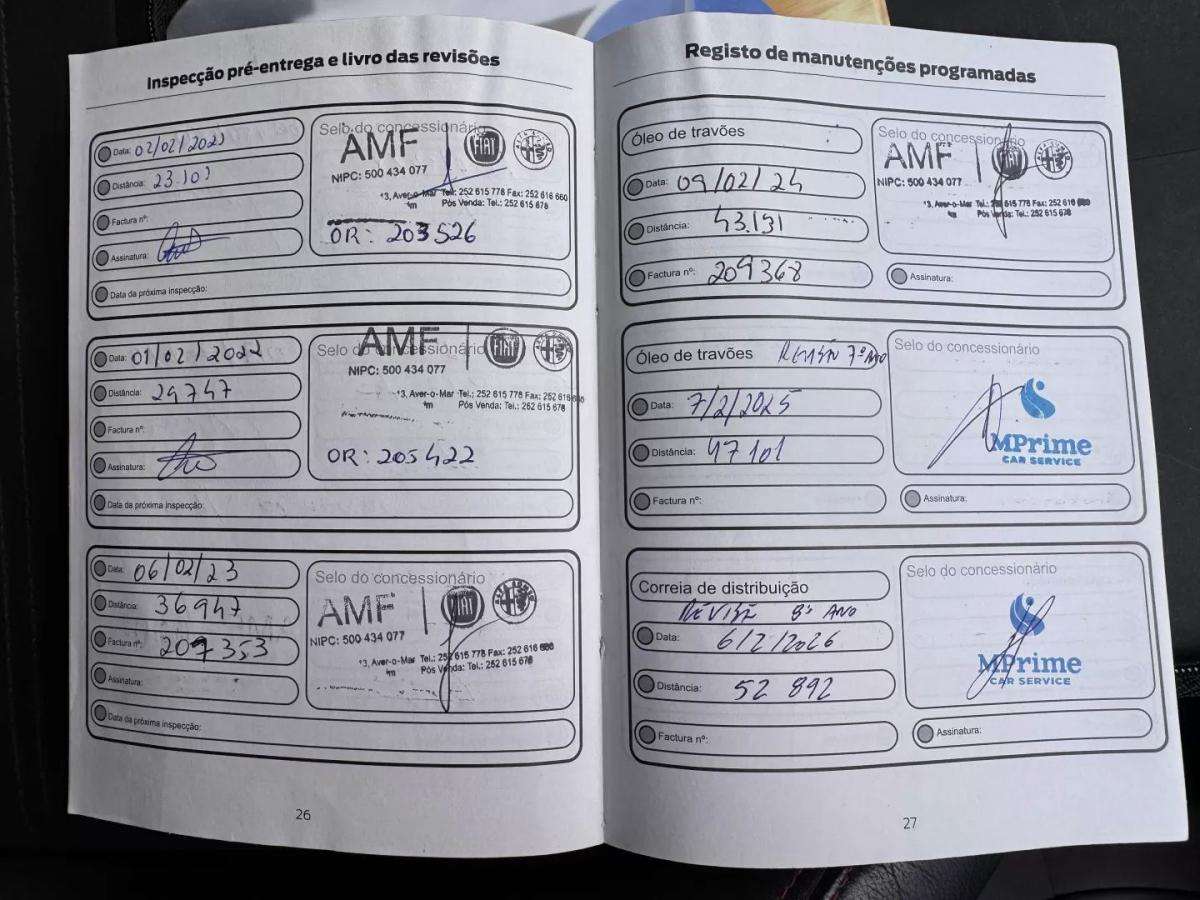 Inspecção pré-entrega e livro das revisões
Data: 02/02/2021
Distância: 23.101
Factura nº:
Assinatura:
Data da próxima inspecção:
Selo do concessionário
AMF FIAT
NIPC: 500 434 077
*3, Aver-o-Mar Tel.: 252 615 778 Fax: 252 616 660
Pós Venda: Tel.: 252 615 678
OR: 203526
Data: 01/02/2022
Distância: 29747
Factura nº:
Assinatura:
Data da próxima inspecção:
Selo do concessionário
AMF FIAT
NIPC: 500 434 077
*3, Aver-o-Mar Tel.: 252 615 778 Fax: 252 616 660
Pós Venda: Tel.: 252 615 678
OR: 205422
Data: 06/02/23
Distância: 36947
Factura nº: 207353
Assinatura:
Data da próxima inspecção:
Selo do concessionário
AMF FIAT
NIPC: 500 434 077
*3, Aver-o-Mar Tel.: 252 615 778 Fax: 252 616 660
Pós Venda: Tel.: 252 615 678
26
Registo de manutenções programadas
Óleo de travões
Data: 09/02/24
Distância: 43.131
Factura nº: 209368
Selo do concessionário
AMF FIAT
NIPC: 500 434 077
*3, Aver-o-Mar Tel.: 252 615 778 Fax: 252 616 660
Pós Venda: Tel.: 252 615 678
Assinatura:
Óleo de travões Revisão 7º Ano
Data: 7/2/2025
Distância: 47101
Factura nº:
Selo do concessionário
MPrime
CAR SERVICE
Assinatura:
Correia de distribuição
Revisão 8º Ano
Data: 6/2/2026
Distância: 52 892
Factura nº:
Selo do concessionário
MPrime
CAR SERVICE
Assinatura:
27